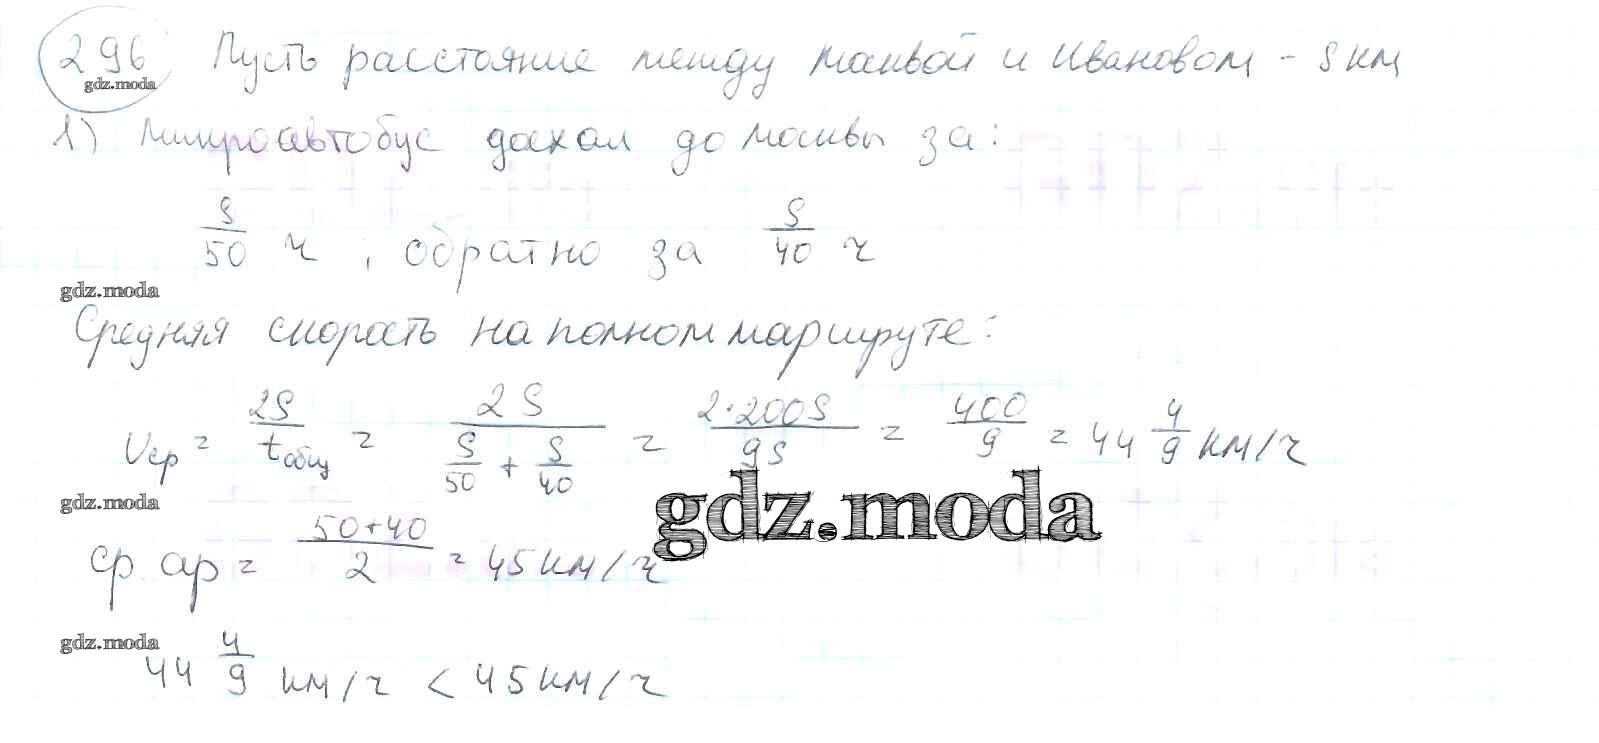 296 Пусть расстояние между Москвой и Ивановом - S км
gdz.moda
1) Микроавтобус доехал до Москвы за:
S/50 ч, обратно за S/40 ч
gdz.moda
Средняя скорость на полном маршруте:
Vср = 2S/tобщ = 2S/(S/50 + S/40) = 2·200S/9S = 400/9 = 44 4/9 км/ч
gdz.moda
gdz.moda
ср ар = (50+40)/2 = 45 км/ч
gdz.moda
44 4/9 км/ч < 45 км/ч